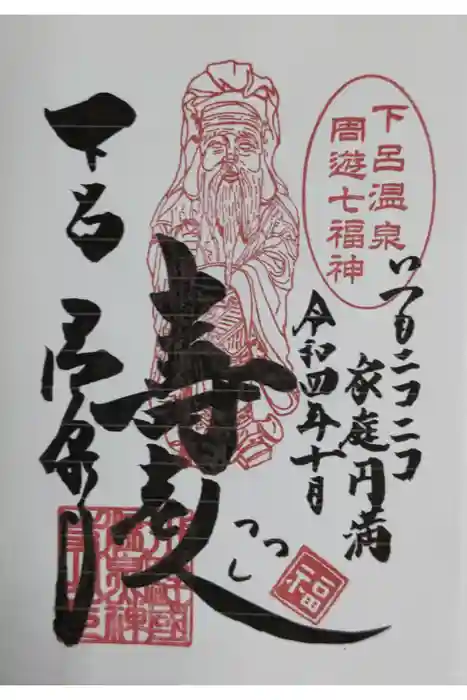 下呂温泉
周遊七福神
いつもニコニコ
家庭円満
令和四年十月
寿老人
つつし
福
下呂温泉